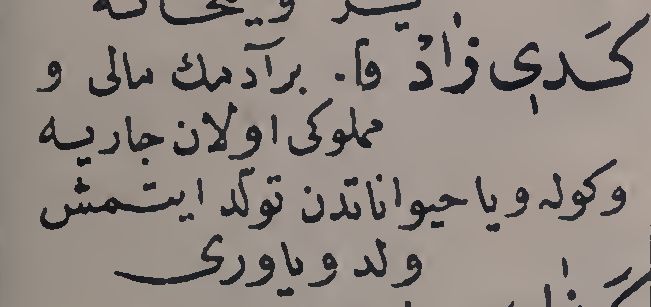 كَدِى زٰادْ فا. برآدمك مالى و
مملوكى اولان جاريه
وكوله ويا حيواناتدن تولّد ايتمش
ولد وياورى